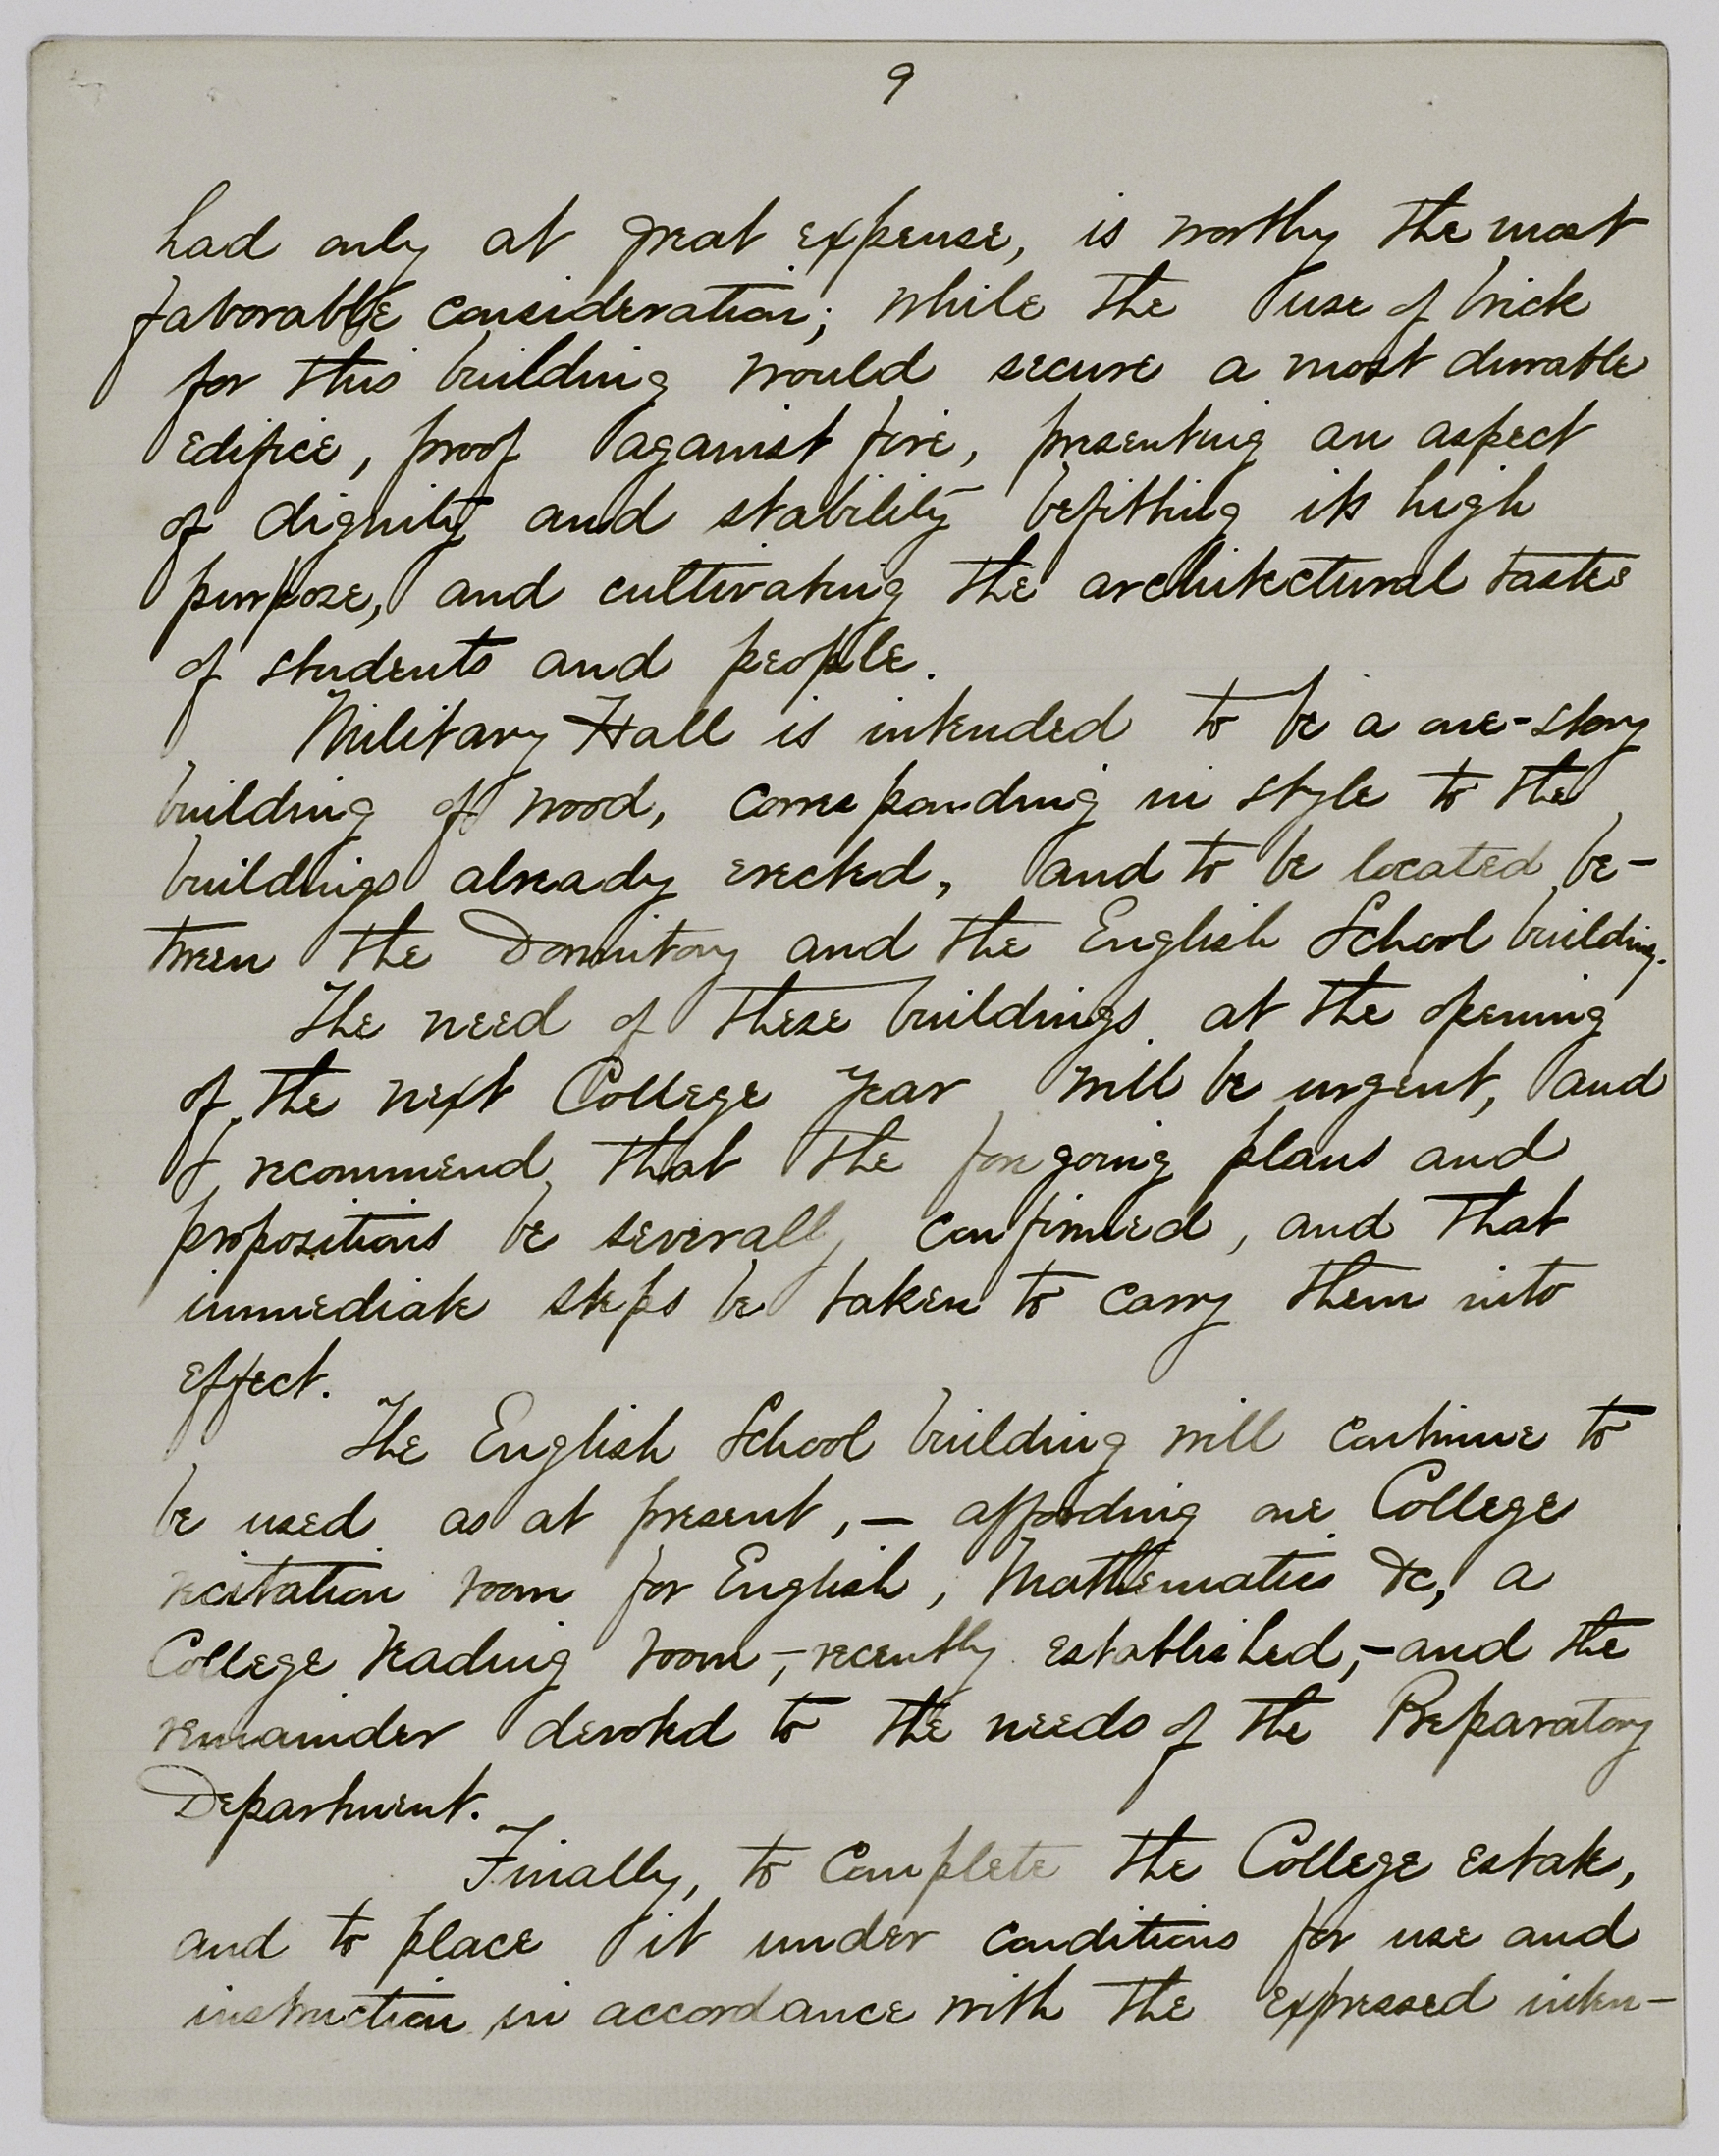 9
had only at great expense, is worthy the most
favorable consideration; while the use of brick
for this building would secure a most durable
edifice, proof against fire, presenting an aspect
of dignity and stability befitting its high
purpose, and cultivating the architectural tastes
of students and people.
Military Hall is intended to be a one-story
building of wood, corresponding in style to the
buildings already erected, and to be located be-
tween the Dormitory and the English School building.
The need of these buildings at the opening
of the next College year will be urgent, and
I recommend that the foregoing plans and
propositions be severally confirmed, and that
immediate steps be taken to carry them into
effect.
The English School building will continue to
be used as at present, — affording one College
recitation room for English, Mathematics &c, a
College reading room, — recently established, — and the
remainder devoted to the needs of the Preparatory
Department.
Finally, to complete the College estate,
and to place it under conditions for use and
instruction in accordance with the expressed inten-